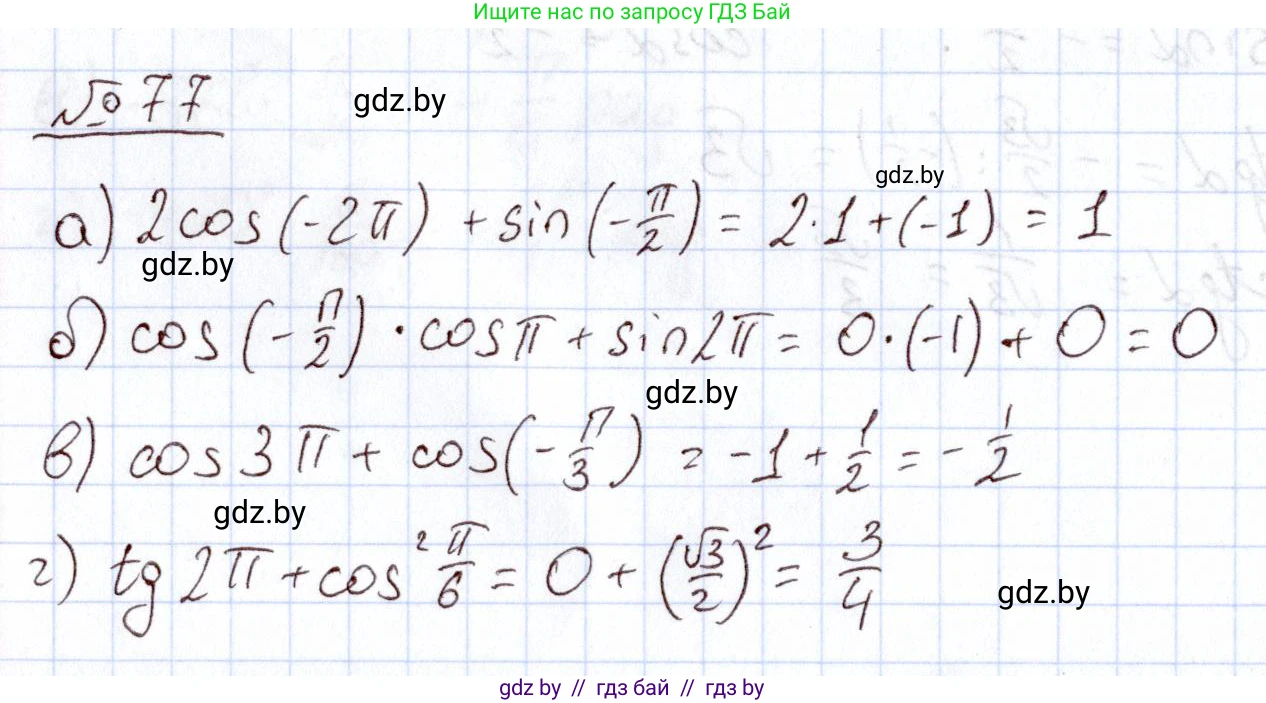 Ищите нас по запросу ГДЗ Бай
№ 77
gdz.by
gdz.by
а) 2cos(-2π) + sin(-π/2) = 2·1+(-1) = 1
gdz.by
б) cos(-π/2)·cosπ + sin2π = 0·(-1) + 0 = 0
gdz.by
в) cos3π + cos(-π/3) = -1 + 1/2 = -1/2
gdz.by
г) tg2π + cos²π/6 = 0 + (√3/2)² = 3/4
gdz.by
gdz by // гдз бай // гдз by